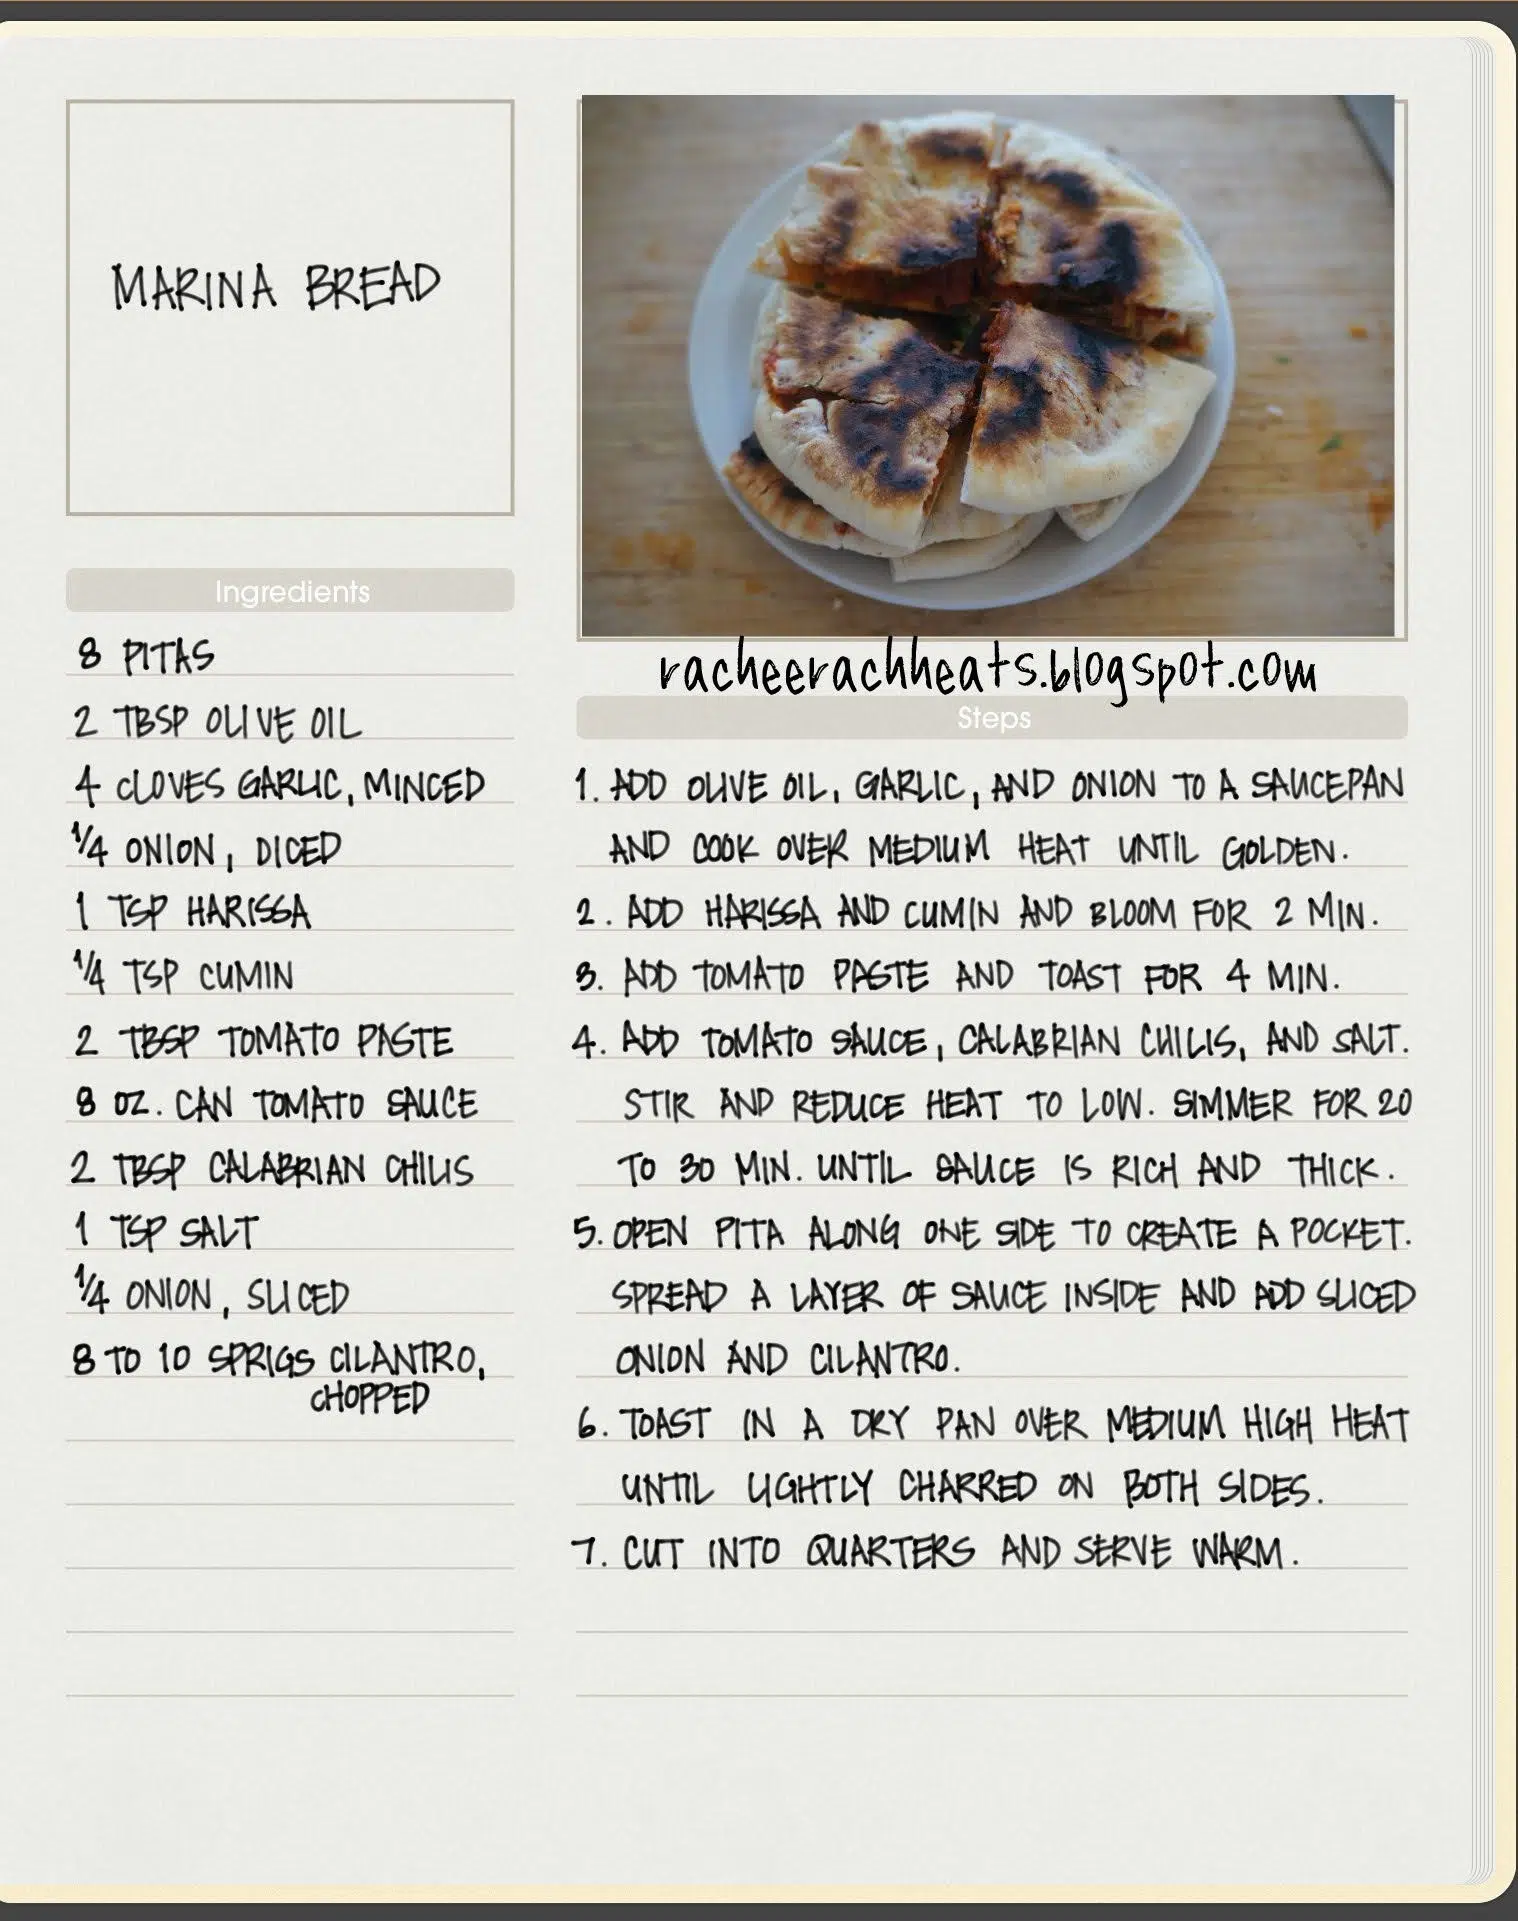 MARINA BREAD
Ingredients
8 PITAS
2 TBSP OLIVE OIL
4 CLOVES GARLIC, MINCED
1/4 ONION, DICED
1 TSP HARISSA
1/4 TSP CUMIN
2 TBSP TOMATO PASTE
8 OZ. CAN TOMATO SAUCE
2 TBSP CALABRIAN CHILIS
1 TSP SALT
1/4 ONION, SLICED
8 TO 10 SPRIGS CILANTRO,
CHOPPED
racheerachheats.blogspot.com
Steps
1. ADD OLIVE OIL, GARLIC, AND ONION TO A SAUCEPAN
AND COOK OVER MEDIUM HEAT UNTIL GOLDEN.
2. ADD HARISSA AND CUMIN AND BLOOM FOR 2 MIN.
3. ADD TOMATO PASTE AND TOAST FOR 4 MIN.
4. ADD TOMATO SAUCE, CALABRIAN CHILIS, AND SALT.
STIR AND REDUCE HEAT TO LOW. SIMMER FOR 20
TO 30 MIN. UNTIL SAUCE IS RICH AND THICK.
5. OPEN PITA ALONG ONE SIDE TO CREATE A POCKET.
SPREAD A LAYER OF SAUCE INSIDE AND ADD SLICED
ONION AND CILANTRO.
6. TOAST IN A DRY PAN OVER MEDIUM HIGH HEAT
UNTIL LIGHTLY CHARRED ON BOTH SIDES.
7. CUT INTO QUARTERS AND SERVE WARM.